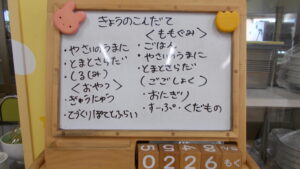 きょうのこんだて
・やさいのうまに
・とまとさらだ
(しる(み)
〈おやつ〉
・ぎゅうにゅう
・てづくりぽてとふらい
〈ももぐみ〉
・ごはん
・やさいのうまに
・とまとさらだ
(ごごしょく)
・おにぎり
・すーぷ・くだもの
0226もく